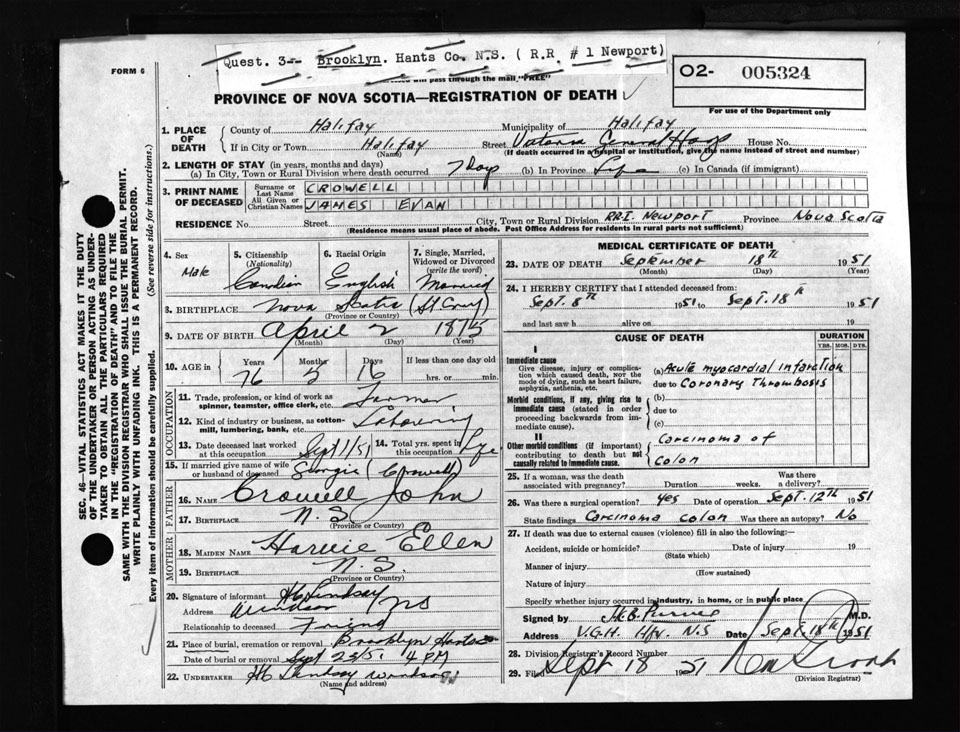 FORM 6
Quest. 3-- Brooklyn. Hants Co. N.S. ( R.R. # 1 Newport)
will pass through the mail "FREE"
O2- 005324
For use of the Department only
PROVINCE OF NOVA SCOTIA—REGISTRATION OF DEATH
1. PLACE OF DEATH
County of Halifax Municipality of Halifax
If in City or Town Halifax Street Victoria General Hosp House No.
(Name) (If death occurred in a hospital or institution, give the name instead of street and number)
2. LENGTH OF STAY (in years, months and days)
(a) In City, Town or Rural Division where death occurred 7 Days (b) In Province Life (c) In Canada (if immigrant)
3. PRINT NAME OF DECEASED
Surname or Last Name CROWELL
All Given or Christian Names JAMES EVAN
RESIDENCE No. Street City, Town or Rural Division RR1. Newport Province Nova Scotia
(Residence means usual place of abode. Post Office Address for residents in rural parts not sufficient)
4. Sex Male
5. Citizenship (Nationality) Canadian
6. Racial Origin English
7. Single, Married, Widowed or Divorced (write the word) Married
8. BIRTHPLACE Nova Scotia
(Province or Country)
9. DATE OF BIRTH April 2 1875
(Month) (Day) (Year)
10. AGE in Years 76 Months 5 Days 16 If less than one day old hrs. or min.
OCCUPATION
11. Trade, profession, or kind of work as spinner, teamster, office clerk, etc. Farmer
12. Kind of industry or business, as cotton-mill, lumbering, bank, etc. Labouring
13. Date deceased last worked at this occupation Sept 1/51
14. Total yrs. spent in this occupation Life
15. If married give name of wife or husband of deceased Georgie (Crowell)
FATHER
16. NAME Crowell John
17. BIRTHPLACE N.S.
(Province or Country)
MOTHER
18. MAIDEN NAME Harvie Ellen
19. BIRTHPLACE N.S.
(Province or Country)
20. Signature of informant HC Lindsay
Address Windsor NS
Relationship to deceased Friend
21. Place of burial, cremation or removal Brooklyn Hants
Date of burial or removal Sept 23/51 4 PM
22. UNDERTAKER HC Lindsay Windsor
(Name and address)
MEDICAL CERTIFICATE OF DEATH
23. DATE OF DEATH September 18th 1951
(Month) (Day) (Year)
24. I HEREBY CERTIFY that I attended deceased from:
Sept. 8th 1951 to Sept. 18th 1951
and last saw h alive on 19
CAUSE OF DEATH
DURATION
YRS. MOS. DYS.
I
Immediate cause
Give disease, injury or complication which caused death, not the mode of dying, such as heart failure, asphyxia, asthenia, etc.
(a) Acute myocardial infarction
due to Coronary Thrombosis
Morbid conditions, if any, giving rise to immediate cause (stated in order proceeding backwards from immediate cause).
(b)
due to
(c)
II
Other morbid conditions (if important) contributing to death but not causally related to immediate cause.
Carcinoma of
colon
25. If a woman, was the death associated with pregnancy? Duration weeks. Was there a delivery?
26. Was there a surgical operation? yes Date of operation Sept. 12th 1951
State findings Carcinoma colon Was there an autopsy? No
27. If death was due to external causes (violence) fill in also the following:—
Accident, suicide or homicide? Date of injury 19
(State which)
Manner of injury
(How sustained)
Nature of injury
Specify whether injury occurred in industry, in home, or in public place
Signed by H.B. Purves M.D.
Address V.G.H. Hfx. N.S Date Sept. 18th 1951
28. Division Registrar's Record Number
29. Filed Sept 18 1951
(Division Registrar)
SEC. 46—VITAL STATISTICS ACT MAKES IT THE DUTY
OF THE UNDERTAKER OR PERSON ACTING AS UNDER-
TAKER TO OBTAIN ALL THE PARTICULARS REQUIRED
IN THE "REGISTRATION OF DEATH" AND TO FILE THE
SAME WITH THE DIVISION REGISTRAR WHO SHALL ISSUE THE BURIAL PERMIT.
WRITE PLAINLY WITH UNFADING INK. THIS IS A PERMANENT RECORD.
Every item of information should be carefully supplied. (See reverse side for instructions.)